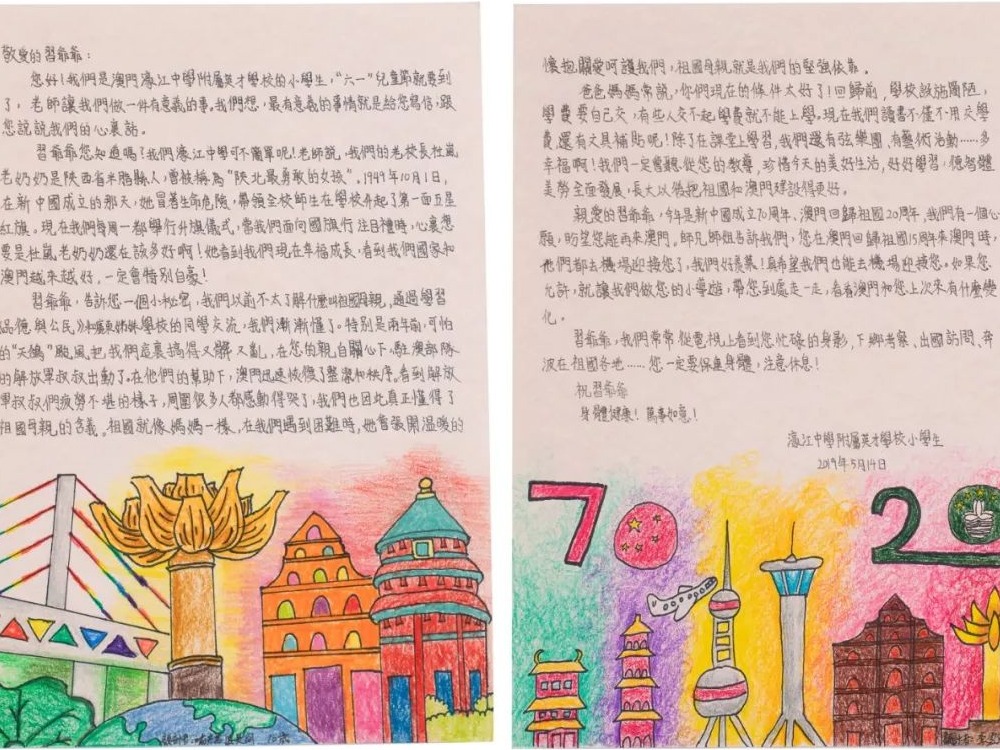 敬愛的習爺爺：
您好！我們是澳門濠江中學附屬英才學校的小學生，“六一”兒童節就要到
了，老師讓我們做一件有意義的事，我們想，最有意義的事情就是給您寫信，跟
您說說我們的心裏話。
習爺爺您知道嗎？我們濠江中學可不簡單呢！老師說，我們的老校長杜嵐
老奶奶是陝西省米脂縣人，曾被稱為“陝北最勇敢的女孩”。1949年10月1日，
在新中國成立的那天，她冒著生命危險，帶領全校師生在學校升起了第一面五星
紅旗。現在我們每周一都舉行升旗儀式，當我們面向國旗行注目禮時，心裏想
要是杜嵐老奶奶還在該多好啊！她看到我們現在幸福成長，看到我們國家和
澳門越來越好，一定會特別自豪！
習爺爺，告訴您一個小秘密，我們以前不太了解什麼叫祖國母親，通過學習
品德與公民》和廣東姊妹學校的同學交流，我們漸漸懂了。特別是兩年前，可怕
的“天鴿”颱風把我們這裏搞得又髒又亂，在您的親自關心下，駐澳部隊
的解放軍叔叔出動了。在他們的幫助下，澳門迅速恢復了整潔和秩序。看到解放
軍叔叔們疲勞不堪的樣子，周圍很多人都感動得哭了，我們也因此真正懂得了
祖國母親的含義。祖國就像媽媽一樣，在我們遇到困難時，她會張開溫暖的
懷抱關愛呵護我們，祖國母親就是我們的堅強依靠。
爸爸媽媽常說，你們現在的條件太好了！回歸前，學校設施簡陋，
學費要自己交，有些人交不起學費就不能上學。現在我們讀書不僅不用交學
費，還有文具補貼呢！除了在課堂上學習，我們還有弦樂團，有藝術活動……多
幸福啊！我們一定會聽從您的教導，珍惜今天的美好生活，好好學習，德智體
美勞全面發展，長大以後把祖國和澳門建設得更好。
親愛的習爺爺，今年是新中國成立70周年、澳門回歸祖國20周年，我們有一個心
願，盼望您能再來澳門。師兄師姐告訴我們，您在澳門回歸祖國15周年來澳門時，
他們都去機場迎接您了，我們好羨慕！真希望我們也能去機場迎接您。如果您
允許，就讓我們做您的小導遊，帶您到處走一走，看看澳門和您上次來有什麼變
化。
習爺爺，我們常常從電視上看到您忙碌的身影，下鄉考察、出國訪問、奔
波在祖國各地……您一定要保重身體，注意休息！
祝習爺爺
身體健康！萬事如意！
濠江中學附屬英才學校小學生
2019年5月14日
70
20